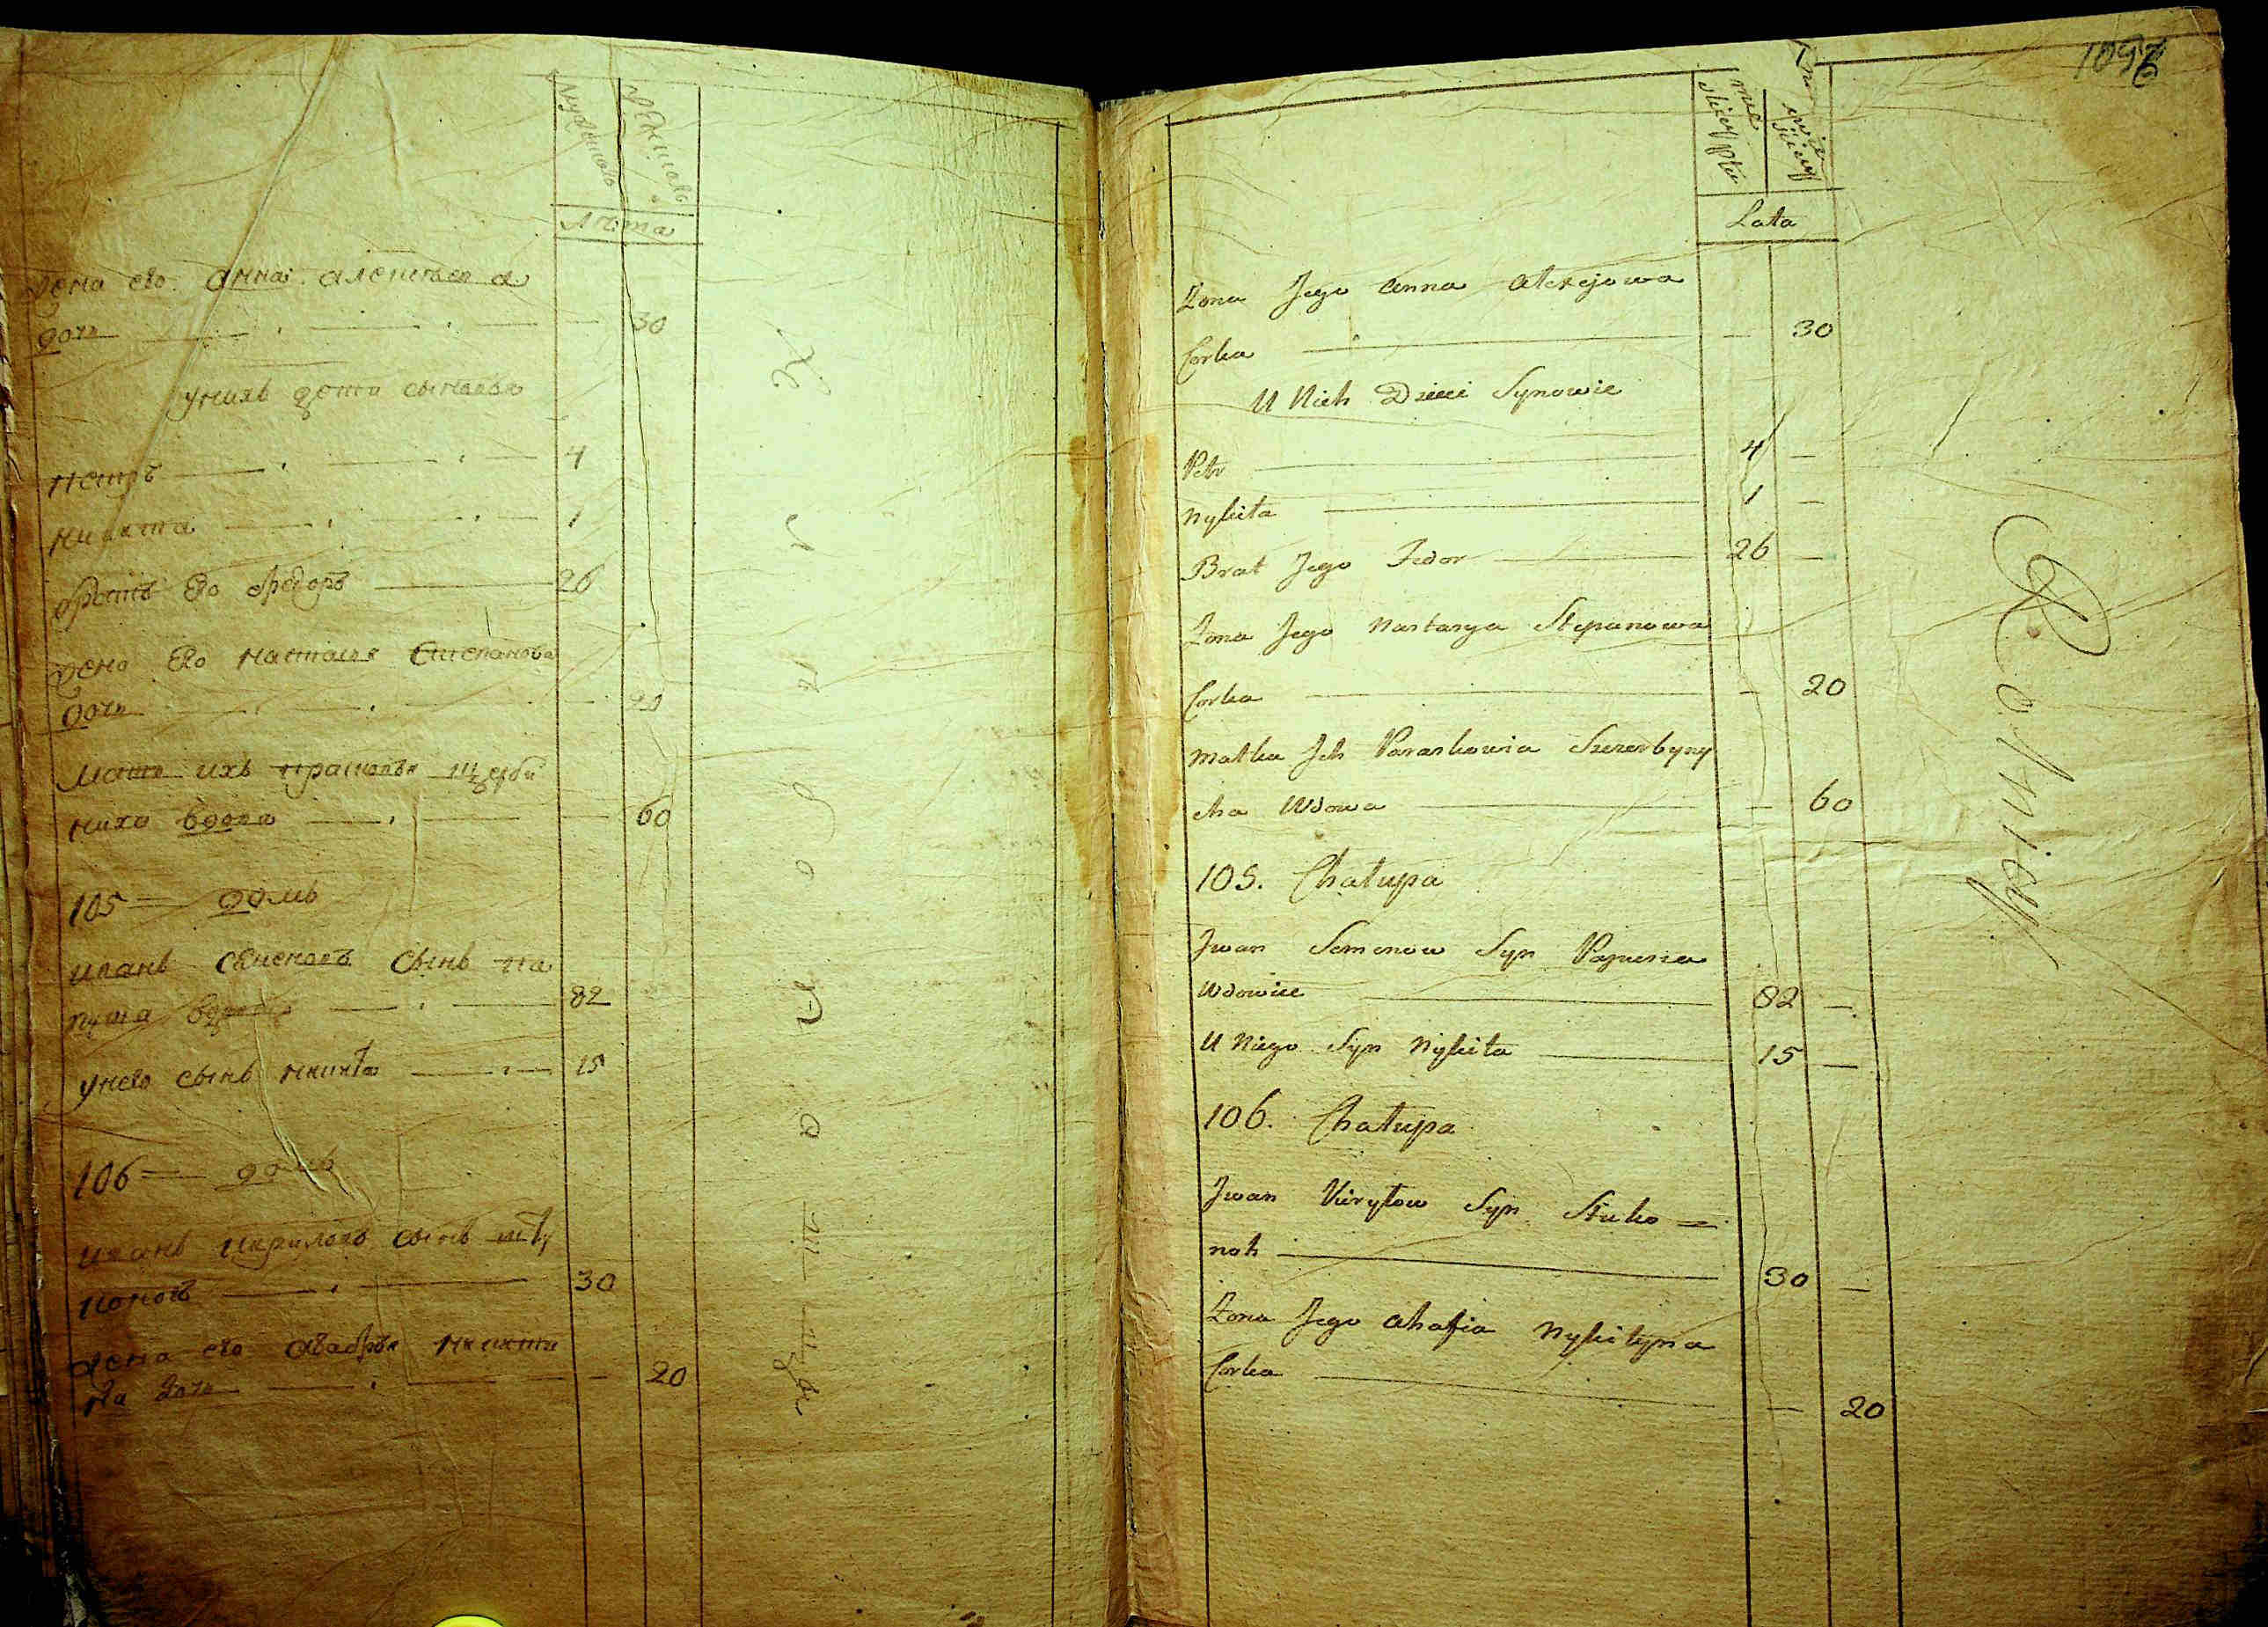 Лѣта
жена его анна алексѣева
дочь 30
у нихъ дети сыновья
петръ 4
никита 1
братъ его федоръ 26
жена его настасья степанова
дочь 20
мать ихъ прасковья щерби
ниха вдова 60
105 домъ
иванъ семеновъ сынъ па
пуша вдовецъ 82
у него сынъ никита 15
106 домъ
иванъ кириловъ сынъ сту
коногъ 30
жена его никити
на дочь 20
1097
Lata
Żona Jego Anna Alexejowa
Corka — 30
U Nich Dzieci Synowie
Petr 4 —
Nykita 1 —
Brat Jego Fedor 26 —
Żona Jego Nastasya Stepanowa
Corka — 20
Matka Ich Paraskowia Szczerbyny
cha Wdowa — 60
105. Chałupa
Iwan Semenow Syn
Wdowiec 82 —
U Niego Syn Nykita 15 —
106. Chałupa
Iwan Kiryłow Syn Stuko =
noh 30 —
Żona Jego Ahafia Nykityna
Corka — 20
Rolnicy